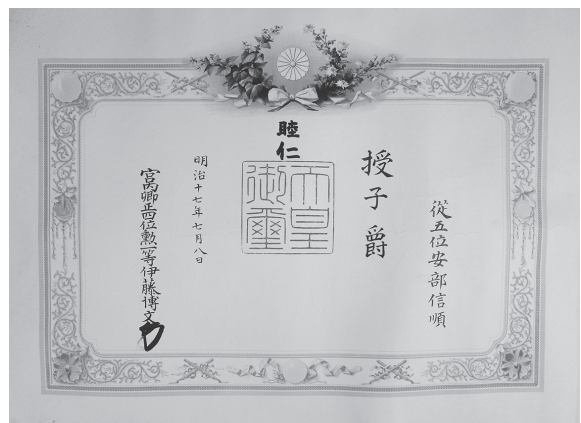 從五位安部信順
授子爵
睦仁
天皇御璽
明治十七年七月八日
宮内卿正四位勲一等伊藤博文